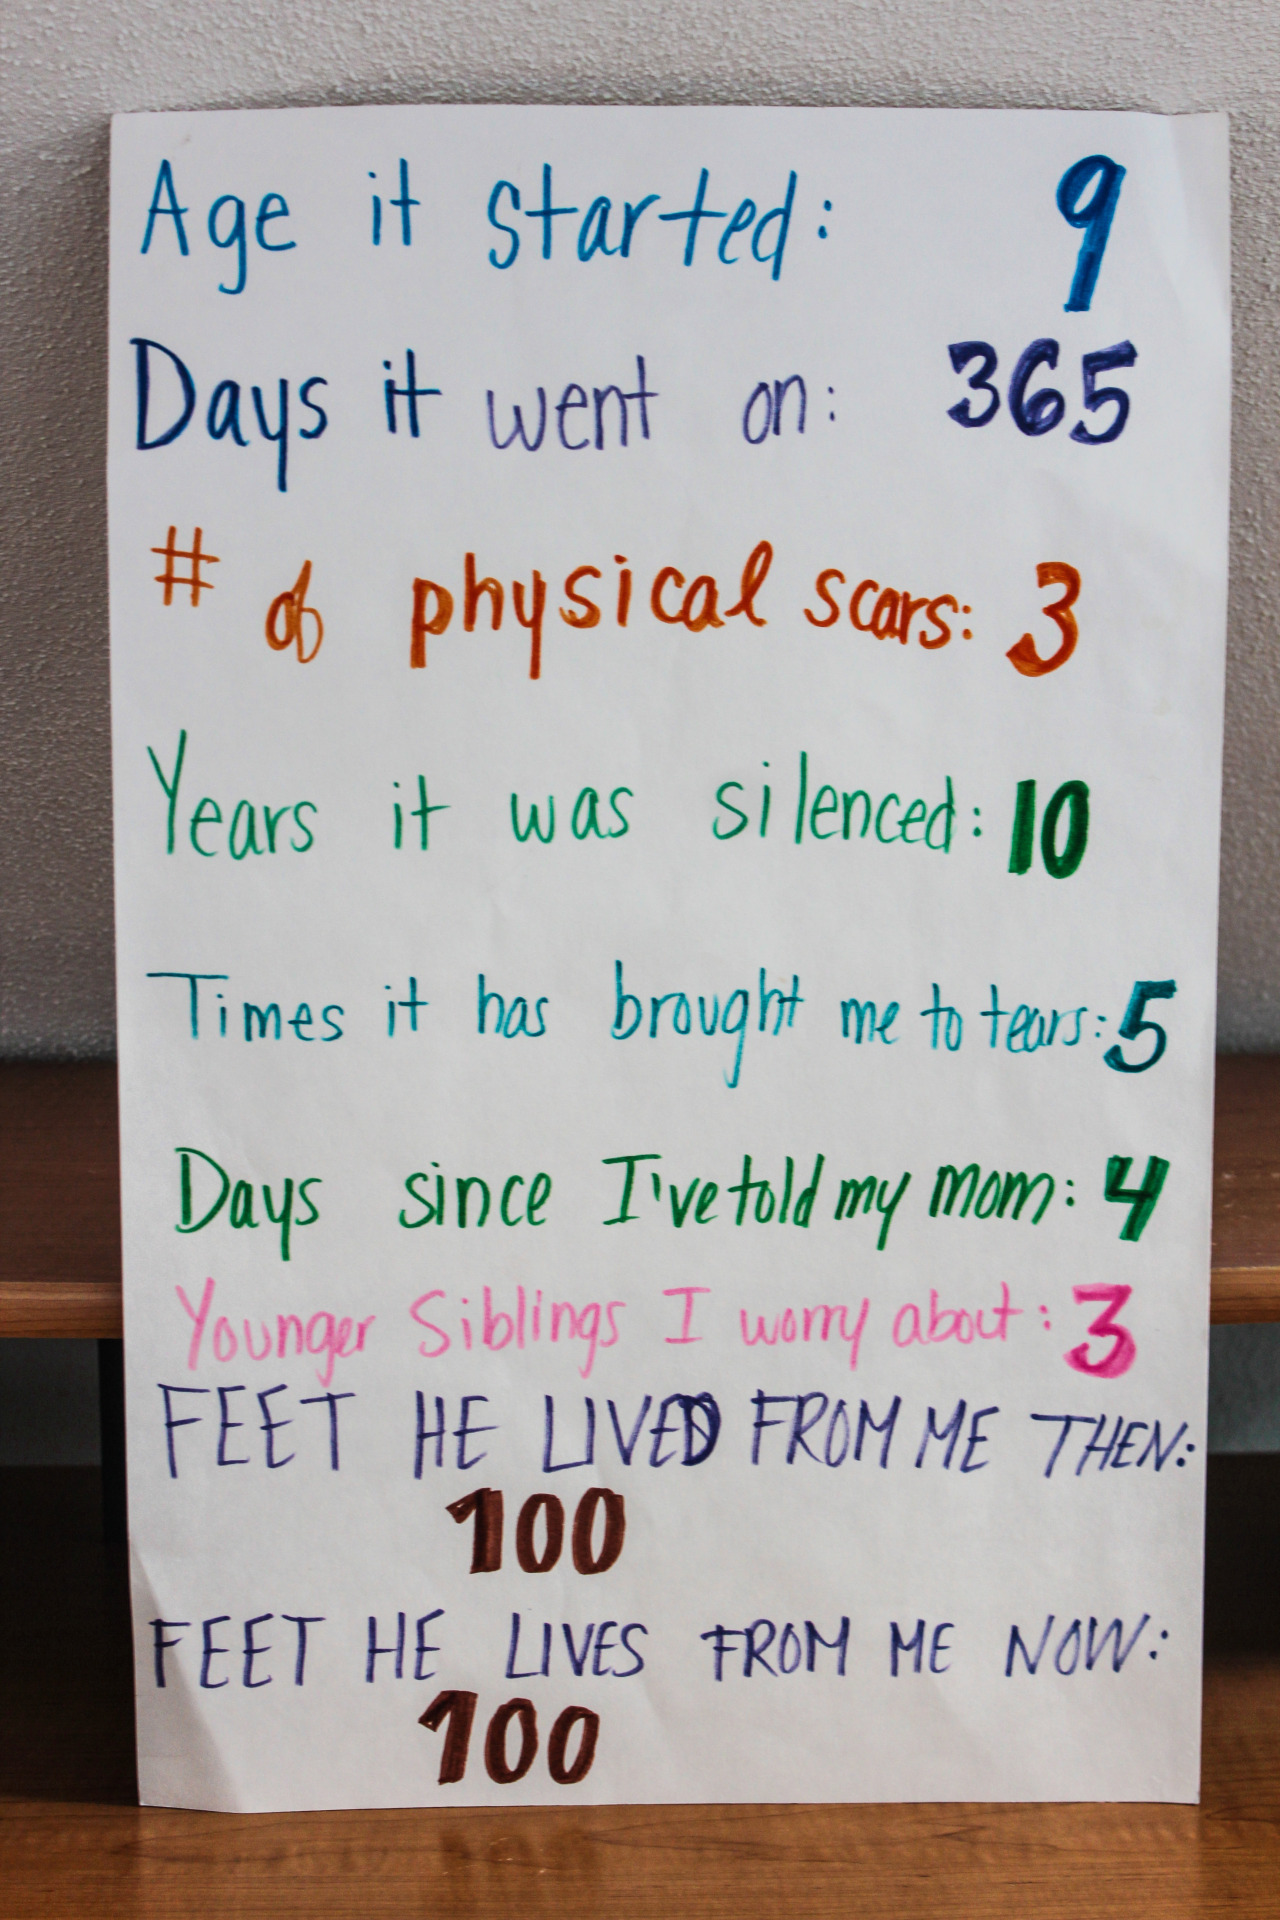 Age it started: 9
Days it went on: 365
# of physical scars: 3
Years it was silenced: 10
Times it has brought me to tears: 5
Days since I've told my mom: 4
Younger Siblings I worry about: 3
FEET HE LIVED FROM ME THEN:
100
FEET HE LIVES FROM ME NOW:
100